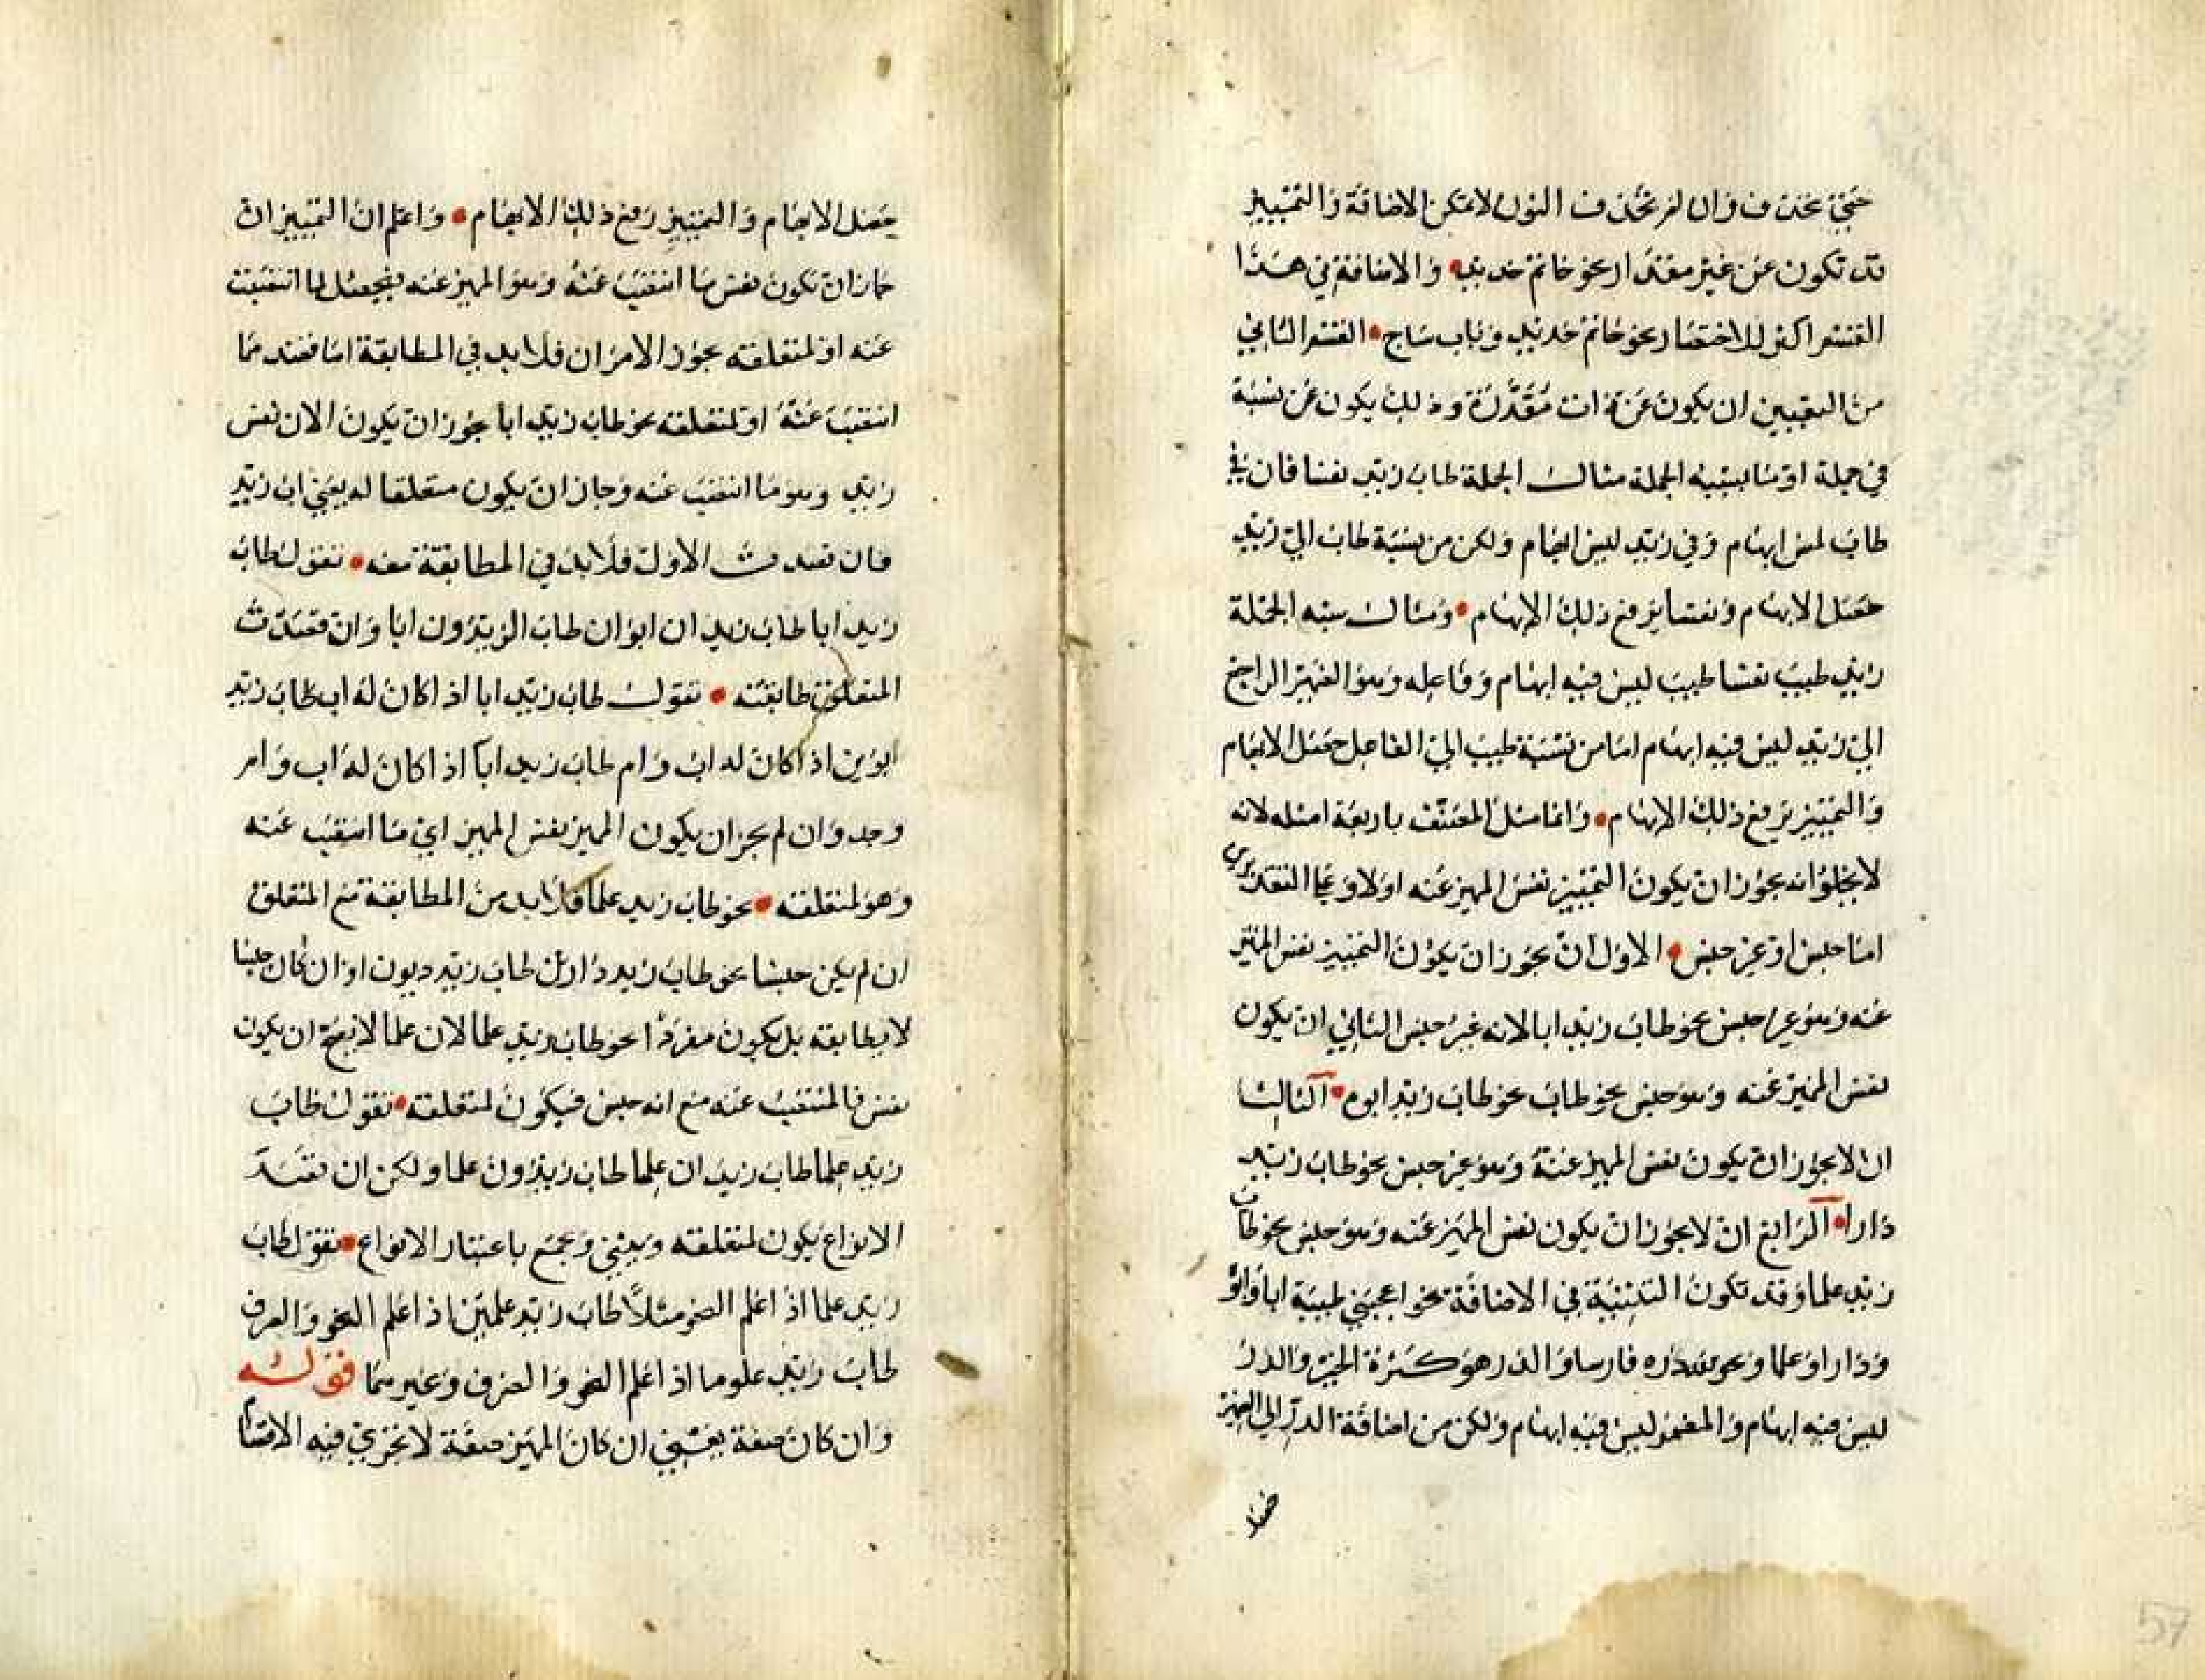 حتى تحذف وان لم تحذف النون لا تمكن الاضافة والتمييز
قد تكون عن غير مقدار نحو خاتم حديد والاضافة في هذا
القسم اكثر للاختصار نحو خاتم حديد وباب ساج القسم الثاني
من القسمين ان يكون عن ذات مقدرة وذلك يكون عن نسبة
في جملة او ما يشبه الجملة مثال الجملة طاب زيد نفسا فان في
طاب ليس ابهام وفي زيد ليس ابهام ولكن من نسبة طاب الى زيد
حصل الابهام ونفسا يرفع ذلك الابهام ومثال شبه الجملة
زيد طيب نفسا طيب ليس فيه ابهام وفاعله وهو الضمير الراجع
الى زيد ليس فيه ابهام اما من نسبة طيب الى الفاعل حصل الابهام
والتمييز يرفع ذلك الابهام وانما مثل المصنف باربعة امثله لانه
لا يخلو انه يجوز ان يكون التمييز نفس المميز عنه اولا وعلى التقديرين
اما جنس او غير جنس الاول ان يجوز ان يكون التمييز نفس المميز
عنه وهو غير جنس نحو طاب زيد ابا لانه غير جنس الثاني ان يكون
نفس المميز عنه وهو جنس نحو طاب نحو طاب زيد ابوه الثالث
ان لا يجوز ان يكون نفس المميز عنه وهو غير جنس نحو طاب زيد
دارا الرابع ان لا يجوز ان يكون نفس المميز عنه وهو جنس نحو طاب
زيد علما وقد تكون النسبة في الاضافة نحو اعجبني طيبه ابا وابوة
ودارا وعلما ونحو لله دره فارسا والدر هو كثرة الخير والدر
ليس فيه ابهام والمضمر ليس فيه ابهام ولكن من اضافة الدر الى الضمير
حصل
حصل الابهام والتمييز رفع ذلك الابهام واعلم ان التمييز ان
جاز ان تكون نفس ما انتصب عنه وهو المميز عنه يجعل لما انتصبت
عنه او لمتعلقه يجوز الامران فلا بد في المطابقة اما قصد مما
انتصب عنه او لمتعلقه نحو طاب زيد ابا يجوز ان يكون الاب نفس
زيد وهو ما انتصب عنه وجاز ان يكون متعلقا له يعني اب زيد
فان قصدت الاول فلا بد في المطابقة معه تقول طاب
زيد ابا طاب زيدان ابوان طاب الزيدون ابا وان قصدت
المتعلق طابقته تقول طاب زيد ابا اذا كان له اب طاب زيد
ابوين اذا كان له اب وام طاب زيد ابا اذا كان له اب وام
وجد وان لم يجز ان يكون المميز نفس المميز اي ما انتصب عنه
وهو لمتعلقه نحو طاب زيد علما فلا بد من المطابقة مع المتعلق
ان لم يكن جنسا نحو طاب زيد دارين طاب زيد ديون او ان كان جنسا
لا يطابقه بل يكون مفردا نحو طاب زيد علما لان علما لا يصح ان يكون
نفس ما انتصب عنه مع انه جنس فيكون لمتعلقه تقول طاب
زيد علما طاب زيدان علما طاب زيدون علما ولكن ان تقصد
الانواع يكون لمتعلقه ويثني ويجمع باعتبار الانواع تقول طاب
زيد علما اذا علم النحو مثلا طاب زيد علمين اذا علم النحو والصرف
طاب زيد علوما اذا علم النحو والصرف وغيرهما قوله
وان كان صفة يعني ان كان المميز صفة لا يجري فيه الاقسام
57